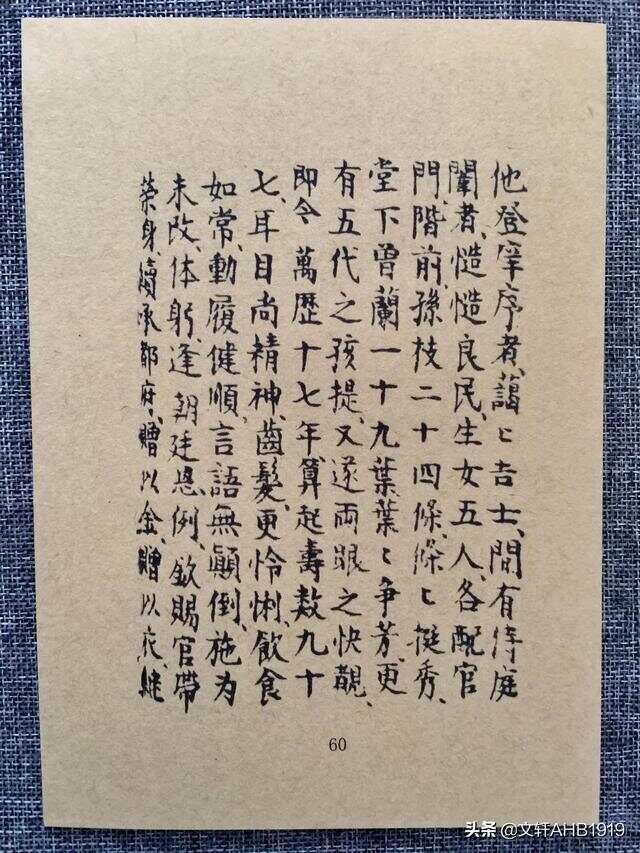 他登宰序者、藹〻吉士、間有侍庭
闈者、慥慥良民、生女五人、各配官
門、階前孫枝二十四條、條〻挺秀、
堂下曾蘭一十九葉、葉〻争芳、更
有五代之孩提、又遂兩眼之快覩、
即今 萬歷十七年、算起壽数九十
七、耳目尚精神、齒髮更怜悧、飲食
如常、動履健順、言語無顛倒、施为
未改、体躬逢 朝廷恩例、欽賜官帶
榮身、續承郡府、贈以金、贈以衣、継
60
头条 @文轩AHB1919